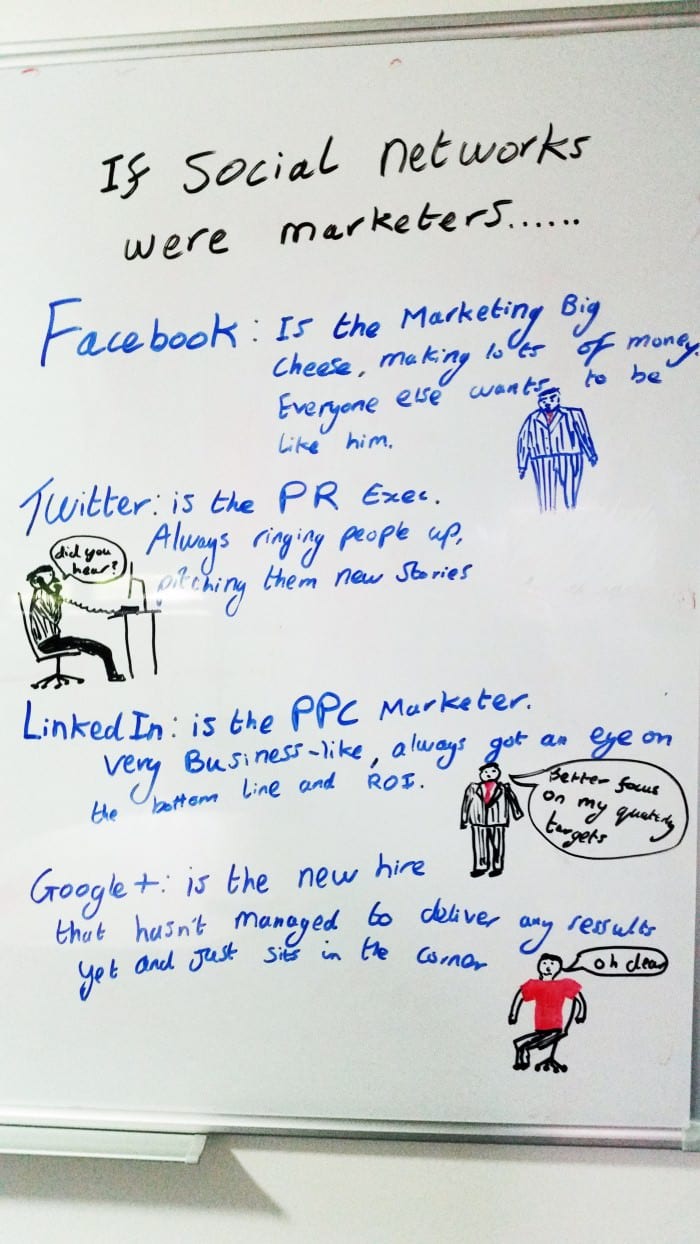 If Social networks
were marketers......
Facebook: Is the Marketing Big
Cheese, making lots of money.
Everyone else wants to be
like him.
Twitter: is the PR Exec.
Always ringing people up,
pitching them new stories
did you
hear?
LinkedIn: is the PPC Marketer.
Very Business-like, always got an eye on
the bottom line and ROI.
Better focus
on my quaterly
targets
Google+: is the new hire
that hasn't managed to deliver any ressults
yet and just sits in the corner
oh dear